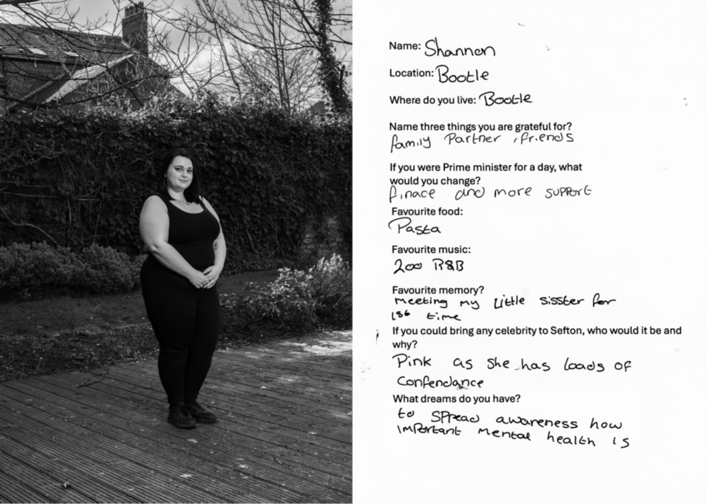 Name: Shannon
Location: Bootle
Where do you live: Bootle
Name three things you are grateful for?
family Partner , friends
If you were Prime minister for a day, what
would you change?
finace and more support
Favourite food:
Pasta
Favourite music:
200 R&B
Favourite memory?
meeting my little sisster for
1st time
If you could bring any celebrity to Sefton, who would it be and
why?
Pink as she has loads of
Confendance
What dreams do you have?
to spread awareness how
important mental health is